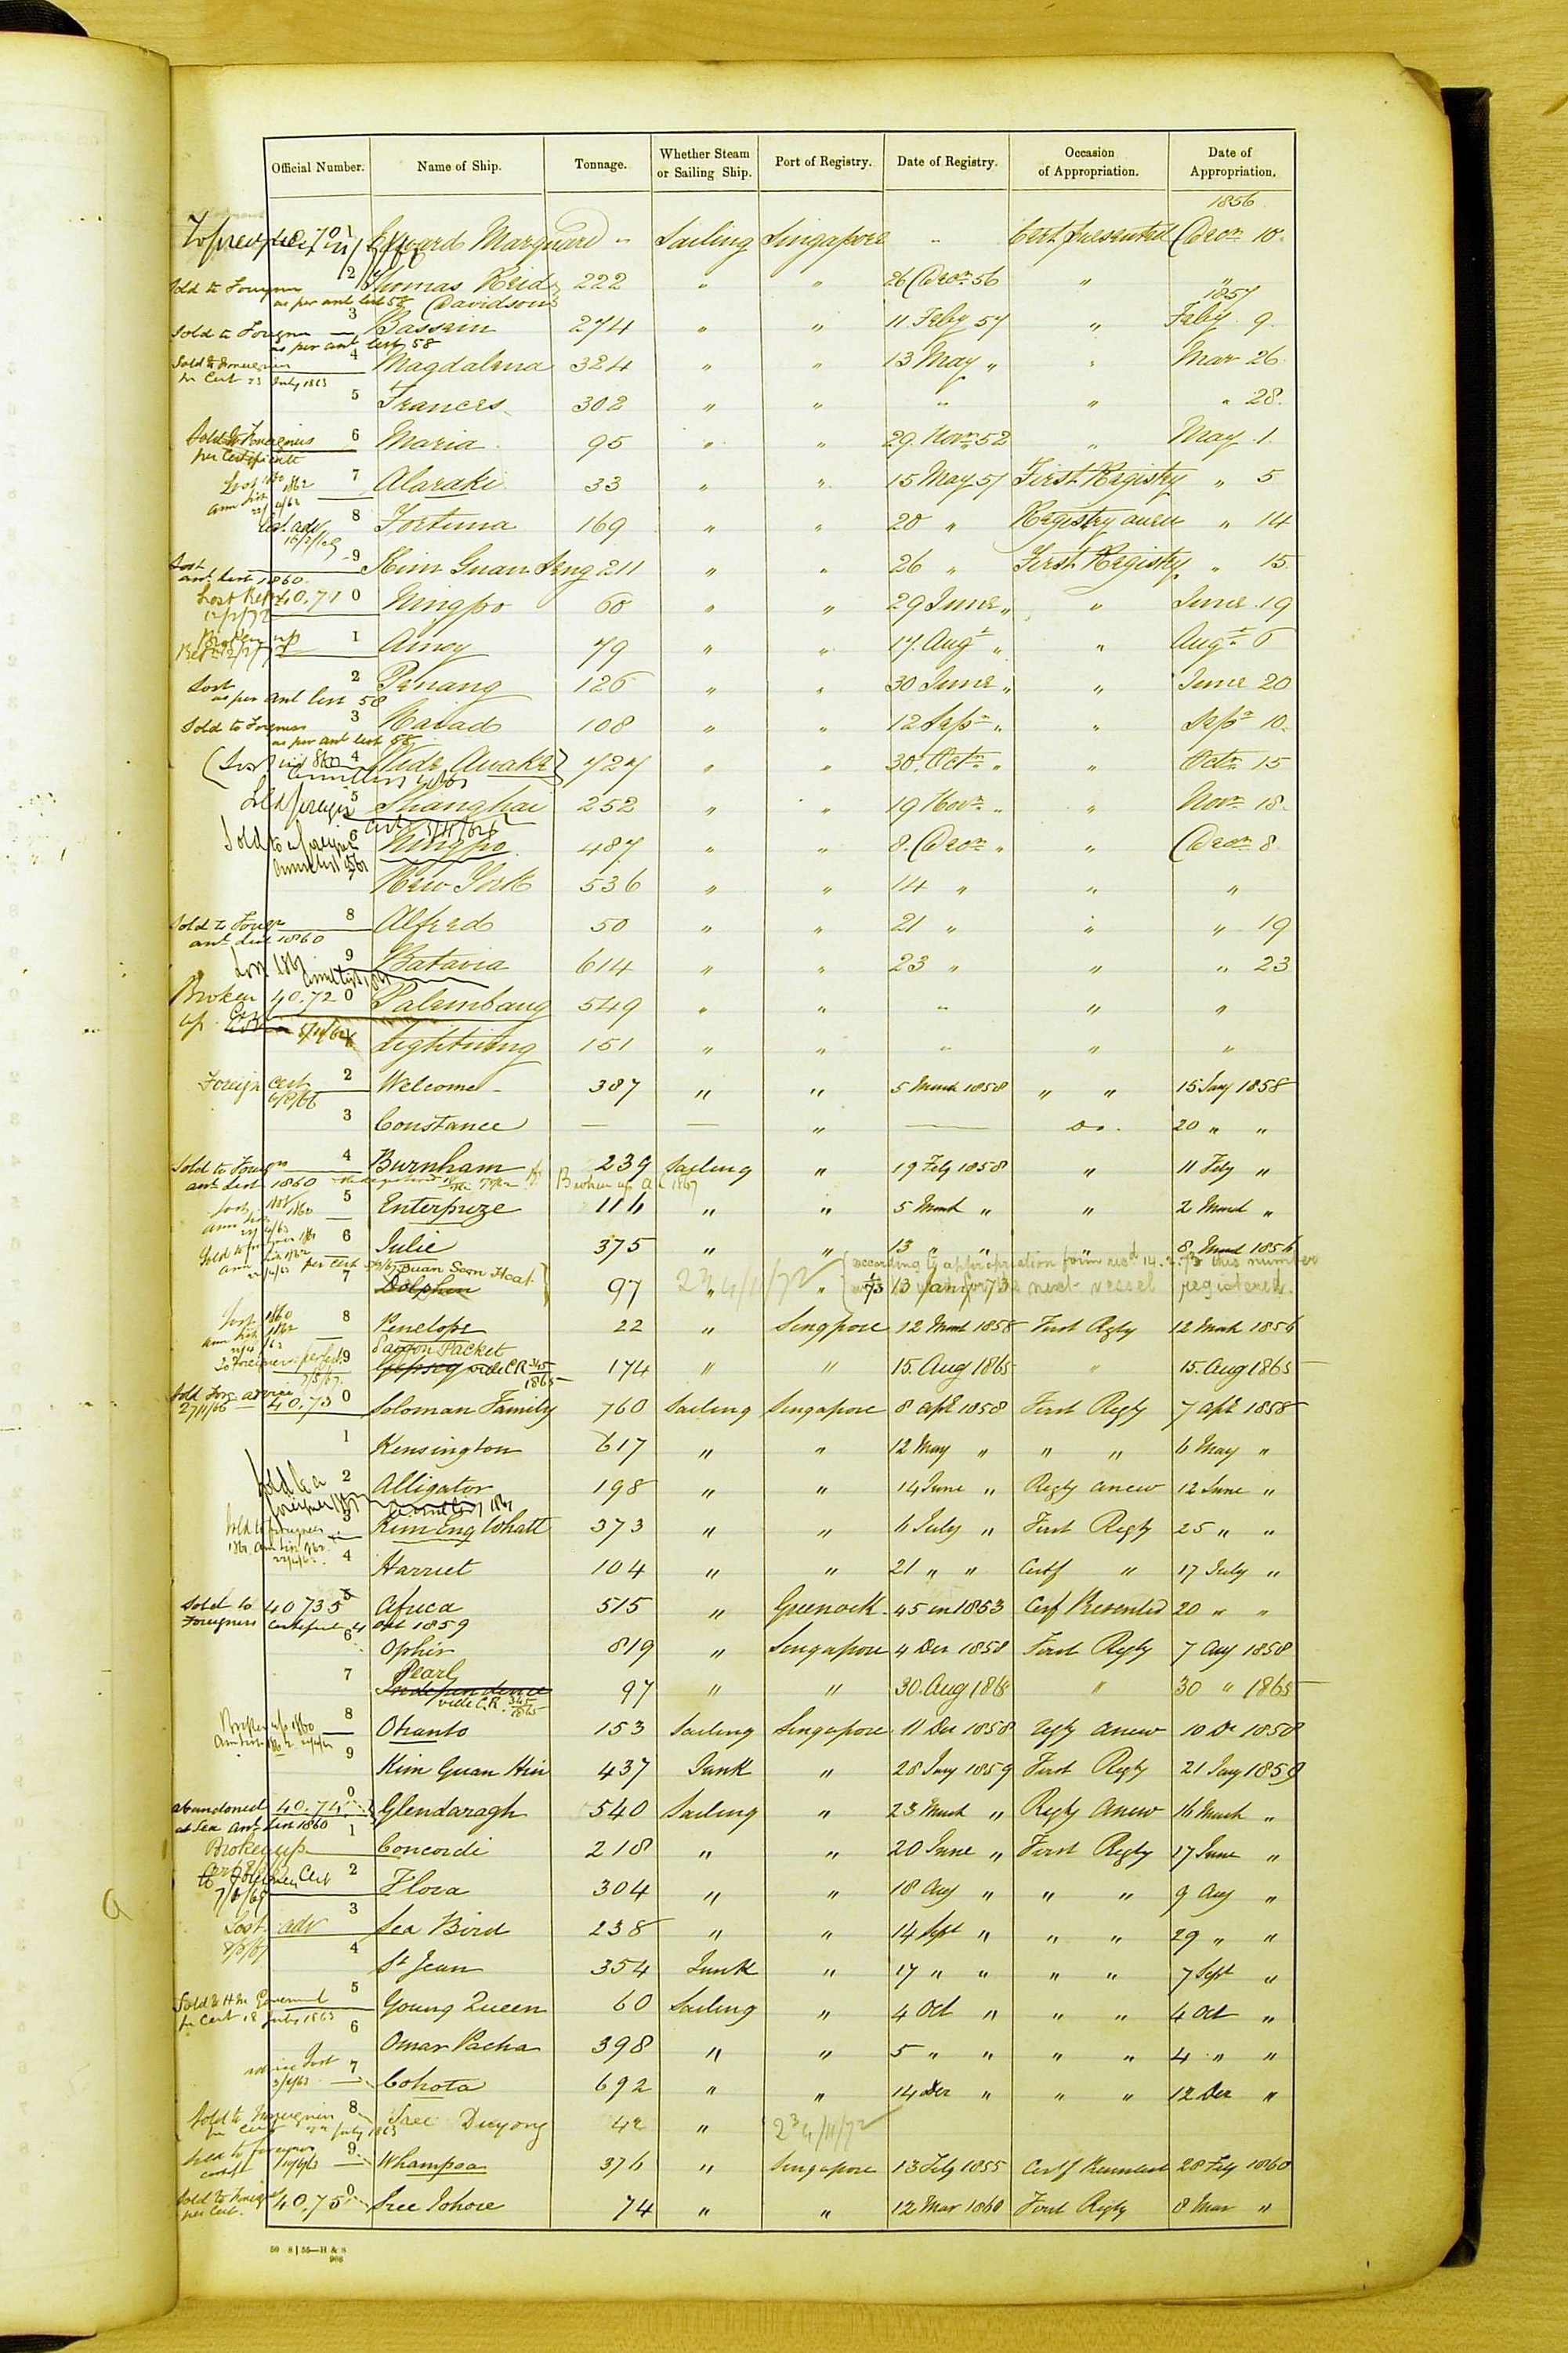 Official Number. Name of Ship. Tonnage. Whether Steam or Sailing Ship. Port of Registry. Date of Registry. Occasion of Appropriation. Date of Appropriation.
1856
40.701 Edward Marquard " Sailing Singapore " Cert presented Decr 10.
2 Thomas Reid 222 " " 26 Decr 56 " "
as per anl list 58 Davidson
1857
Sold to Foreigner 3 Bassein 274 " " 11 Feby 57 " Feby 9
as per anl list 58
Sold to Foreigner 4 Magdalena 324 " " 13 May " " Mar 26
pr Cert 23 July 1863
5 Frances 302 " " " " " 28.
Sold to Foreigners 6 Maria 95 " " 29. Novr 52 " May 1
per Certificate
7 Alaraki 33 " " 15 May 57 First Registry " 5
8 Fortuna 169 " " 20 " Registry anew " 14
Lost 9 Kim Guan Seng 211 " " 26 " First Registry " 15
anl List 1860
40.710 Ningpo 60 " " 29 June " " June 19
Broken up 1 Amoy 79 " " 17. Augt " " Augt 6
Lost 2 Penang 126 " " 30 June " " June 20
as per anl list 58
Sold to Foreigner 3 Naiad 108 " " 12 Sepr " " Sepr 10.
as per anl list 58
4 Wide Awake 727 " " 30. Octr " " Octr 15
5 Shanghai 252 " " 19 Novr " " Novr 18.
Sold to a foreigner 6 Ningpo 487 " " 8. Decr " " Decr 8
New York 536 " " 14 " " "
Sold to Foreigr 8 Alfred 50 " " 21 " " " 19
anl List 1860
9 Batavia 614 " " 23 " " " 23
Broken up 40.720 Palembang 549 " " " " "
Lightning 151 " " " " "
Foreign Cert 2 Welcome 387 " " 5 March 1858 " " 15 Jany 1858
3 Constance — — " — Do. 20 " "
Sold to Foreigr 4 Burnham 239 Sailing " 19 Feby 1858 " 11 Feby "
anl List 1860 Broken up 1867
5 Enterprize 116 " " 5 March " " 2 March "
6 Julie 375 " " 13 " " " 8 March 1858
according to appropriation form recd 14.2.73 this number
7 Buan Soon Hoat 97 " 23 4/11/72 " 1/73 13 Jany 73 next vessel registered.
Dolphin
8 Penelope 22 " Singpore 12 March 1858 First Regty 12 March 1858
Paggon Packet
9 Gipsey vide CR 345/1865 174 " " 15. Aug 1865 " 15. Aug 1865
40.730 Soloman Family 760 Sailing Singapore 8 Apl 1858 First Regty 7 Apl 1858
1 Kensington 617 " " 12 May " " " 6 May "
Sold to a foreigner 2 Alligator 198 " " 14 June " Regty anew 12 June "
Sold to foreigner 3 Kim Eng Whatt 373 " " 6 July " First Regty 25 " "
4 Harriet 104 " " 21 " " Certf " 17 July "
Sold to Foreigners 40735 Africa 515 " Greenock. 45 in 1853 Cerf Presented 20 " "
Certificate Oct 1859
6 Ophir 819 " Singapore 4 Decr 1858 First Regty 7 Aug 1858
Pearl
7 Independence 97 " " 30. Aug 1865 " 30 " 1865
vide C.R. 345/1865
Broken up 1860 8 Otranto 153 Sailing Singapore 11 Dec 1858 Regty anew 10 De 1858
9 Kim Guan Hin 437 Junk " 28 Jany 1859 First Regty 21 Jany 1859
abandoned at Sea anl List 1860 40.740 Glendaragh 540 Sailing " 23 March " Regty Anew 16 March "
Broken up 1 Concordi 218 " " 20 June " First Regty 17 June "
2 Flora 304 " " 18 Aug " " " 9 Aug "
Lost adv 3 Sea Bird 238 " " 14 Sept " " " 29 " "
4 St Jean 354 Junk " 17 " " " " 7 Sept "
Sold to H.M. Government 5 Young Queen 60 Sailing " 4 Oct " " " 4 Oct "
pr Cert 18 July 1863
6 Omar Pacha 398 " " 5 " " " " 4 " "
advice Lost 7 Cohota 692 " " 14 Decr " " " 12 Decr "
Sold to Foreigner 8 Sree Duyong 42 " 23 4/11/72
9 Whampoa 376 " Singapore 13 Feby 1855 Certf Presented 28 Feby 1860
Sold to Foreigner per Cert. 40.750 Sree Johore 74 " " 12 Mar 1860 First Regty 8 Mar "
50 8 | 55—H & S
906